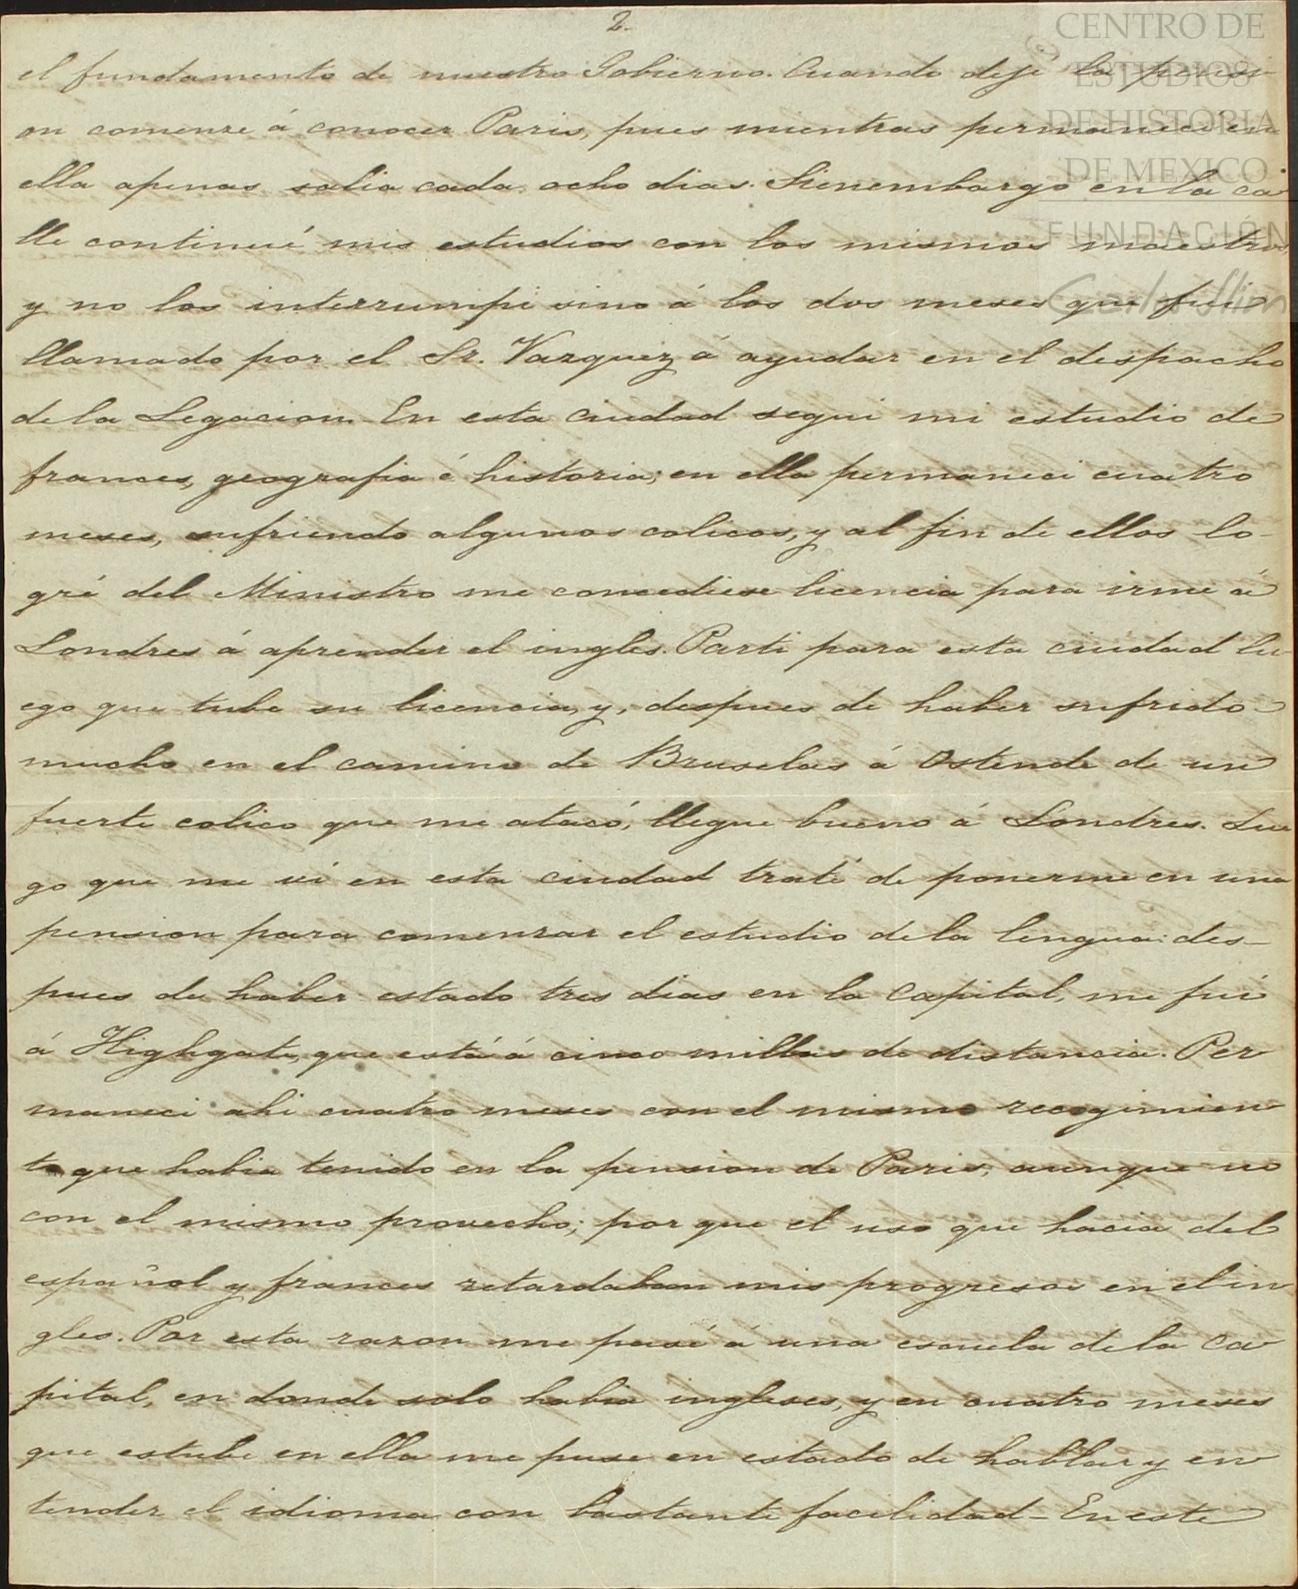 2.
el fundamento de nuestro Gobierno. Cuando dejé la pensi
on comenze á conocer Paris, pues mientras permaneci en
ella apenas salia cada ocho dias. Sienembargo en la ca
lle continué mis estudios con los mismos maestros,
y no los interrumpi sino á los dos meses que fui
llamado por el Sr. Vazquez á ayudar en el despacho
de la Legacion. En esta ciudad segui mi estudio de
frances, geografia é historia; en ella permaneci cuatro
meses, sufriendo algunos colicos, y al fin de ellos lo-
gré del Ministro me concediese licencia para irme á
Londres á aprender el ingles. Parti para esta ciudad lu-
ego que tube su licencia, y, despues de haber sufrido
mucho en el camino de Bruselas á Ostende de un
fuerte colico que me atacó, llegue bueno á Londres. Lue
go que me vi en esta ciudad traté de ponerme en una
pension para comenzar el estudio de la lengua: des-
pues de haber estado tres dias en la Capital, me fui
á Highgate, que está á cinco millas de distancia. Per
maneci ahi cuatro meses con el mismo recogimien
to que habia tenido en la pension de Paris, aunque no
con el mismo provecho; por que el uso que hacia del
español y frances retardaban mis progresos en el in
gles. Por esta razon me pasé á una escuela de la Ca
pital, en donde solo habia ingleses, y en cuatro meses
que estube en ella me puse en estado de hablar y en
tender el idioma con bastante facilidad - En este
CENTRO DE
ESTUDIOS
DE HISTORIA
DE MEXICO
FUNDACIÓN
Carlos Slim